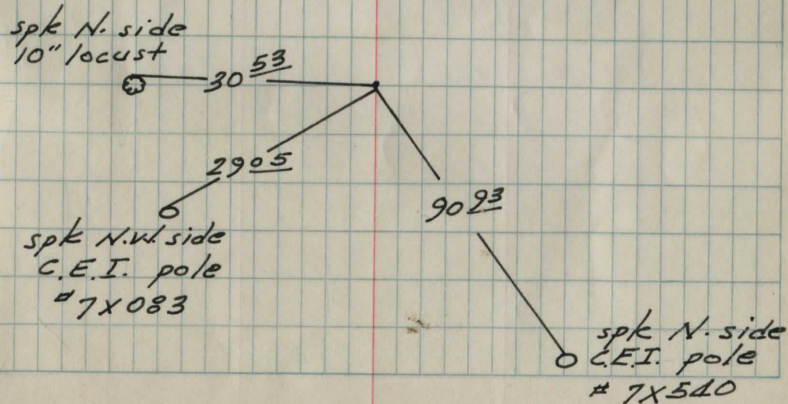 spk N. side
10" locust
30 53
29 05
90 93
spk N.W. side
C.E.I. pole
# 7X083
spk N. side
C.E.I. pole
# 7X540